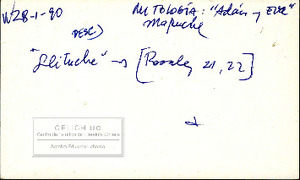 W28-1-90
MITOLOGÍA: "Adán y Eva"
Mapuche
"Llituche" → [Rosales 21, 22]
CELICH UC